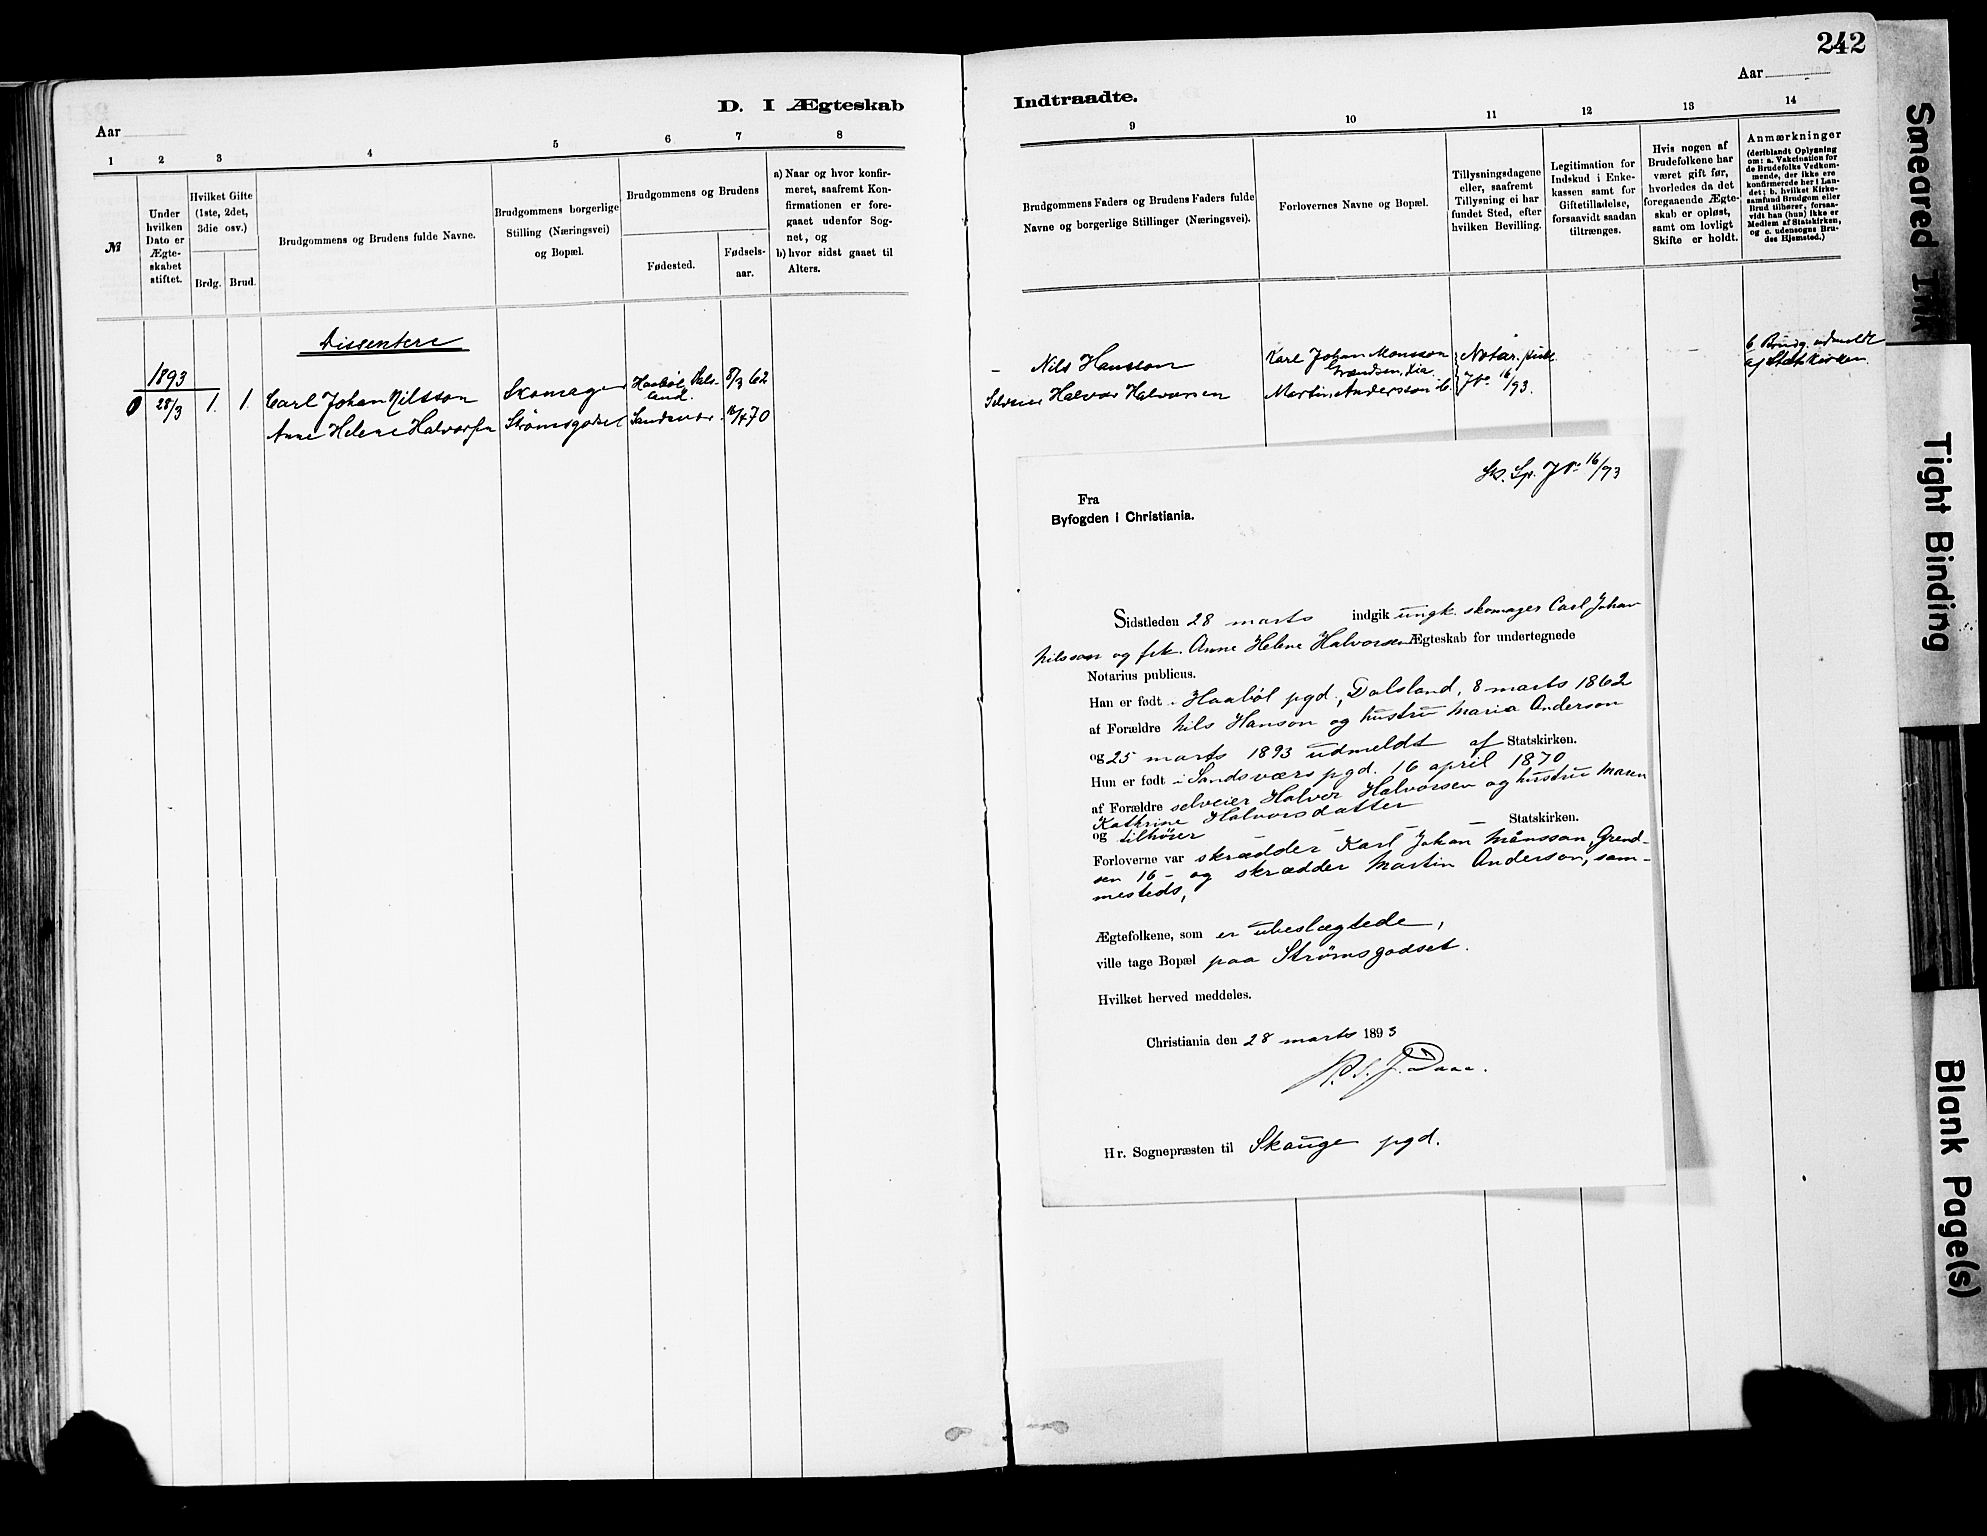 242
Aar
D. I Ægteskab
Indtraadte.
Aar
1 2 3 4 5 6 7 8
9 10 11 12 13 14
№
Under hvilken Dato er Ægteskabet stiftet.
Hvilket Gifte (1ste, 2det, 3die osv.)
Brdg. Brud.
Brudgommens og Brudens fulde Navne.
Brudgommens borgerlige Stilling (Næringsvei) og Bopæl.
Brudgommens og Brudens
Fødested.
Fødsels-
aar.
a) Naar og hvor konfir-
meret, saafremt Kon-
firmationen er fore-
gaaet udenfor Sog-
net, og
b) hvor sidst gaaet til
Alters.
Brudgommens Faders og Brudens Faders fulde
Navne og borgerlige Stillinger (Næringsvei).
Forlovernes Navne og Bopæl.
Tillysningsdagene
eller, saafremt
Tillysning ei har
fundet Sted, efter
hvilken Bevilling.
Legitimation for
Indskud i Enke-
kassen samt for
Giftetilladelse,
forsaavidt saadan
tiltrænges.
Hvis nogen af
Brudefolkene har
været gift før,
hvorledes da det
foregaaende Ægte-
skab er opløst,
samt om lovligt
Skifte er holdt.
Anmærkninger
(deriblandt Oplysning
om: a. Vakcination for
de Brudefolks Vedkom-
mende, der ikke ere
konfirmerede her i Lan-
det; b. hvilket Kirke-
samfund Brudgom eller
Brud tilhører, forsaa-
vidt han (hun) ikke er
Medlem af Statskirken,
og c. udensogns Bru-
des Hjemsted.)
Dissentere
1893
0 28/3 1. 1. Carl Johan Nilsson Skomager Haabøl, Dals-
land. 8/3 62
Anne Helene Halvorsen Strømsgodset Sandsvær 16/4 70
Nils Hansson
Selveier Halvor Halvorsen
Karl Johan Monsson
Grændsen, Xia
Martin Andersson ib.
Notar. publ.
J No 16/93.
b Brudg. udmeldt
af Statskirken
Sk. Sp. J No 16/93
Fra
Byfogden i Christiania.
Sidstleden 28 marts indgik ungk. skomager Carl Johan
Nilsson og frk. Anne Helene Halvorsen Ægteskab for undertegnede
Notarius publicus.
Han er født i Haabøl pgd., Dalsland, 8 marts 1862
af Forældre Nils Hanson og hustru Maria Anderson
og 25 marts 1893 udmeldt af Statskirken.
Hun er født i Sandsværs pgd. 16 april 1870
af Forældre selveier Halvor Halvorsen og hustru Maren
Kathrine Halvorsdatter
og tilhører Statskirken.
Forloverne var skrædder Karl Johan Månsson, Grend-
sen 16 - og skrædder Martin Anderson, sam-
mesteds,
Ægtefolkene, som er ubeslægtede,
ville tage Bopæl paa Strømsgodset.
Hvilket herved meddeles.
Christiania den 28 marts 1893
Daae.
Hr. Sognepræsten til Skouge pgd.
Smeared Ink
Tight Binding
Blank Page(s)